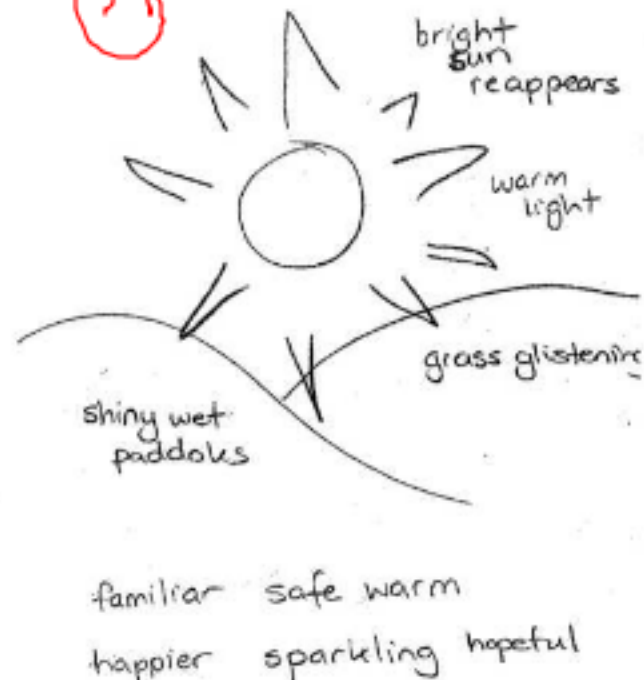 bright
sun
reappears
warm
light
grass glistening
shiny wet
paddoks
familiar safe warm
happier sparkling hopeful